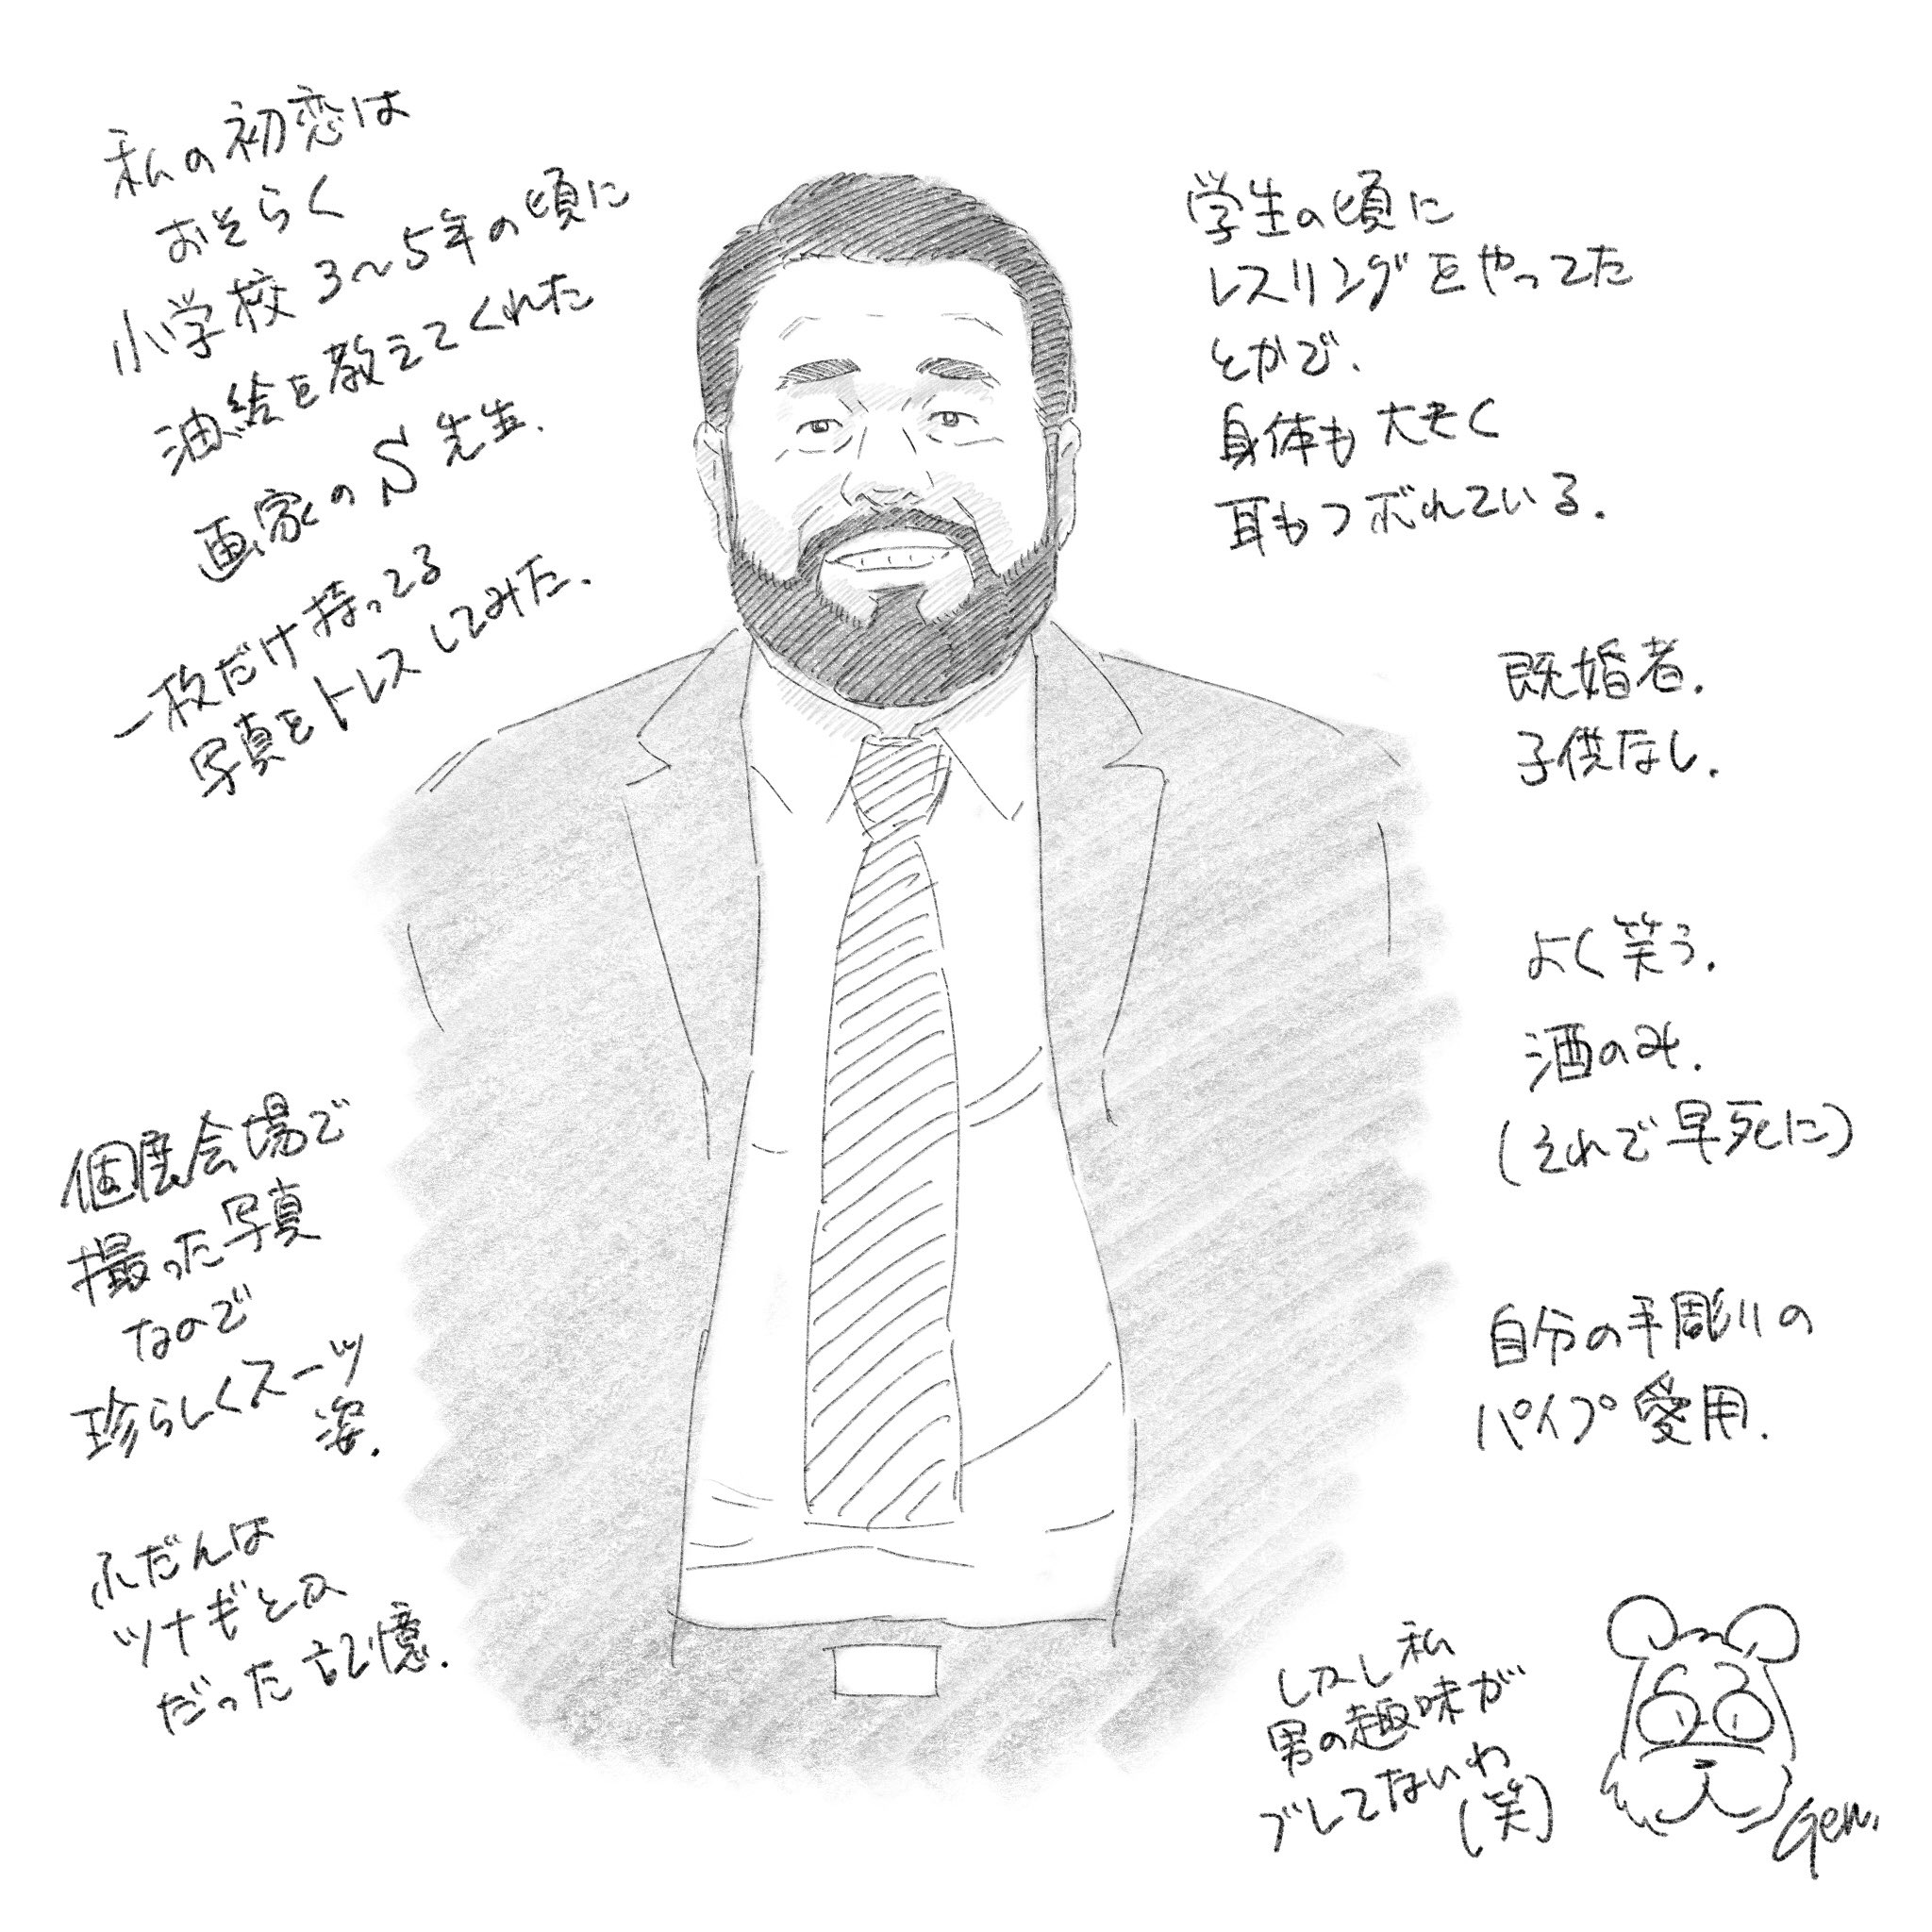 私の初恋は
おそらく
小学校3〜5年の頃に
油絵を教えてくれた
画家のS先生.
一枚だけ持ってる
写真をトレスしてみた.
個展会場で
撮った写真
なので
珍らしくスーツ
姿.
ふだんは
ツナギとか
だった記憶.
学生の頃に
レスリングをやってた
とかで.
身体も大きく
耳もツボれている.
既婚者.
子供なし.
よく笑う.
酒のみ.
(それで早死に)
自分の手彫りの
パイプ愛用.
しかし私
男の趣味が
ブレてないわ
(笑)
Gen.